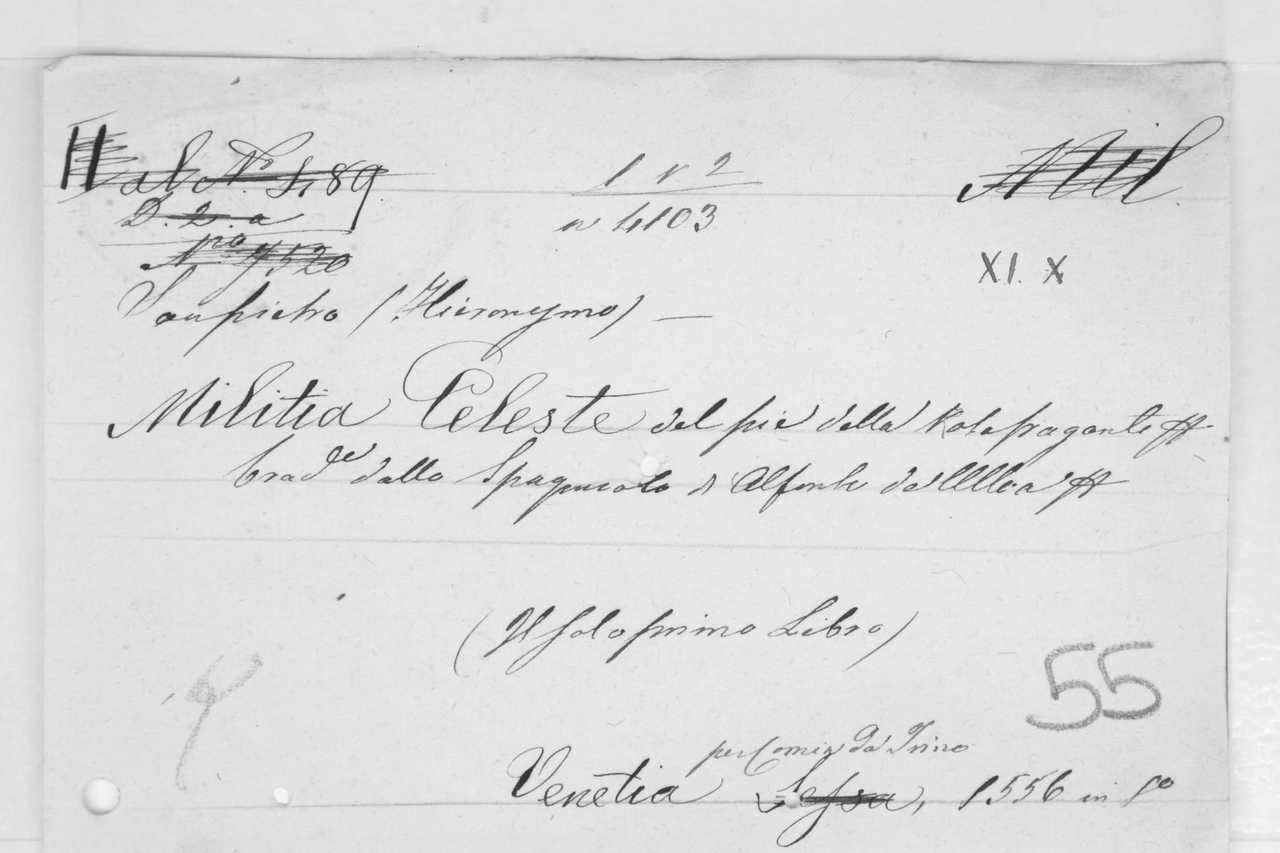 Hab. Nr. 4,89
D. 2. a
Nro 7520
1 v 2
n 4103
XI. X
Sanpietro (Hieronymo) —
Militia Celeste del pie della Rosa fragante
trad.e dallo Spagnuolo di Alfonso de Ulloa
(Il solo primo Libro)
55
per Comin da Trino
Venetia Sessa, 1556 in 8o